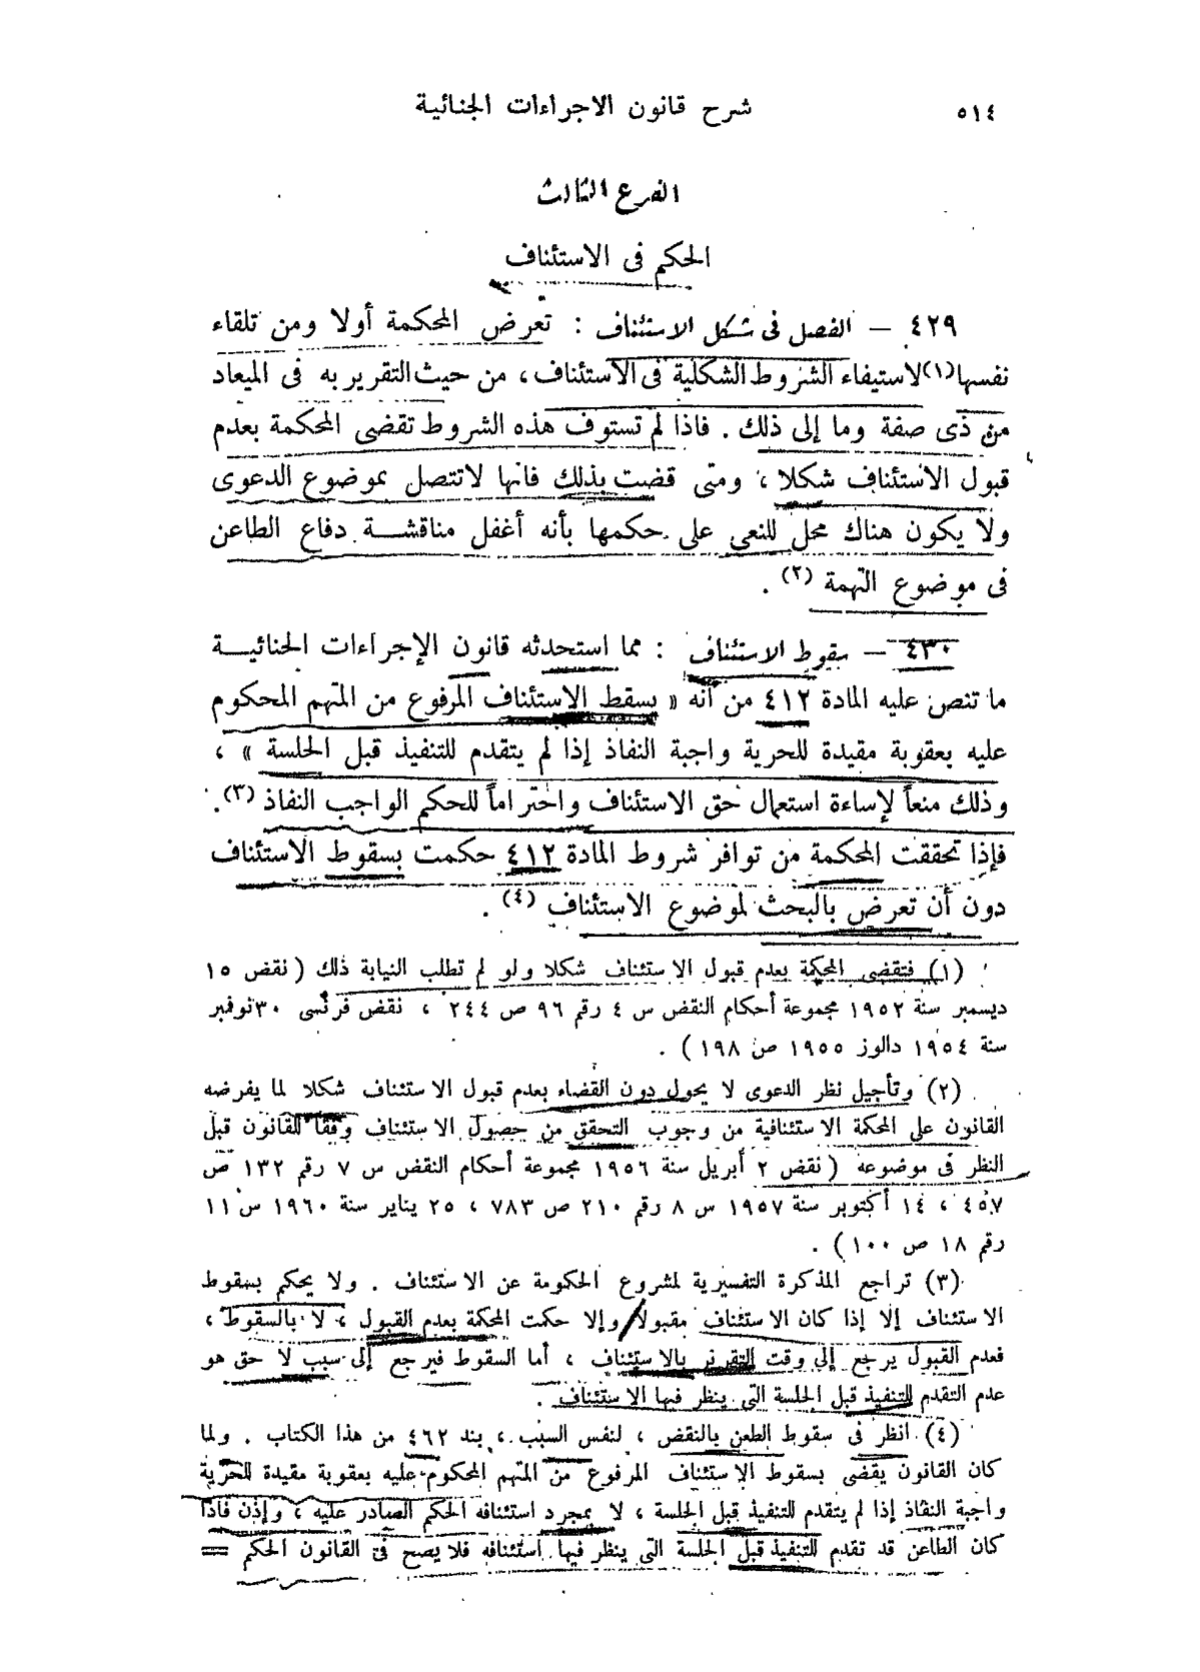 ٥١٤
شرح قانون الاجراءات الجنائية
الفرع الثالث
الحكم فى الاستئناف
٤٢٩ — الفصل فى شكل الاستئناف : تعرض المحكمة أولا ومن تلقاء
نفسها(١)لاستيفاء الشروط الشكلية فى الاستئناف، من حيث التقرير به فى الميعاد
من ذى صفة وما إلى ذلك . فاذا لم تستوف هذه الشروط تقضى المحكمة بعدم
قبول الاستئناف شكلا ، ومتى قضت بذلك فانها لاتتصل بموضوع الدعوى
ولا يكون هناك محل للنعى على حكمها بأنه أغفل مناقشة دفاع الطاعن
فى موضوع التهمة (٢) .
٤٣٠ — سقوط الاستئناف : مما استحدثه قانون الإجراءات الجنائية
ما تنص عليه المادة ٤١٢ من أنه « يسقط الاستئناف المرفوع من المتهم المحكوم
عليه بعقوبة مقيدة للحرية واجبة النفاذ إذا لم يتقدم للتنفيذ قبل الجلسة » ،
وذلك منعاً لإساءة استعمال حق الاستئناف واحتراماً للحكم الواجب النفاذ (٣).
فإذا تحققت المحكمة من توافر شروط المادة ٤١٢ حكمت بسقوط الاستئناف
دون أن تعرض بالبحث لموضوع الاستئناف (٤) .
(١) فتقضى المحكمة بعدم قبول الاستئناف شكلا ولو لم تطلب النيابة ذلك ( نقض ١٥
ديسمبر سنة ١٩٥٢ مجموعة أحكام النقض س ٤ رقم ٩٦ ص ٢٤٤ ، نقض فرنسى ٣٠نوفمبر
سنة ١٩٥٤ دالوز ١٩٥٥ ص ١٩٨ ) .
(٢) وتأجيل نظر الدعوى لا يحول دون القضاء بعدم قبول الاستئناف شكلا لما يفرضه
القانون على المحكمة الاستئنافية من وجوب التحقق من حصول الاستئناف وفقا للقانون قبل
النظر فى موضوعه ( نقض ٢ أبريل سنة ١٩٥٦ مجموعة أحكام النقض س ٧ رقم ١٣٢ ص
٤٥٧ ، ١٤ أكتوبر سنة ١٩٥٧ س ٨ رقم ٢١٠ ص ٧٨٣ ، ٢٥ يناير سنة ١٩٦٠ س ١١
رقم ١٨ ص ١٠٠ ) .
(٣) تراجع المذكرة التفسيرية لمشروع الحكومة عن الاستئناف . ولا يحكم بسقوط
الاستئناف إلا إذا كان الاستئناف مقبولا وإلا حكمت المحكمة بعدم القبول ، لا بالسقوط ،
فعدم القبول يرجع إلى وقت التقرير بالاستئناف ، أما السقوط فيرجع إلى سبب لاحق هو
عدم التقدم للتنفيذ قبل الجلسة التى ينظر فيها الاستئناف .
(٤) انظر فى سقوط الطعن بالنقض ، لنفس السبب ، بند ٤٦٢ من هذا الكتاب . ولما
كان القانون يقضى بسقوط الإستئناف المرفوع من المتهم المحكوم عليه بعقوبة مقيدة للحرية
واجبة النفاذ إذا لم يتقدم للتنفيذ قبل الجلسة ، لا بمجرد استئنافه الحكم الصادر عليه ، وإذن فاذا
كان الطاعن قد تقدم للتنفيذ قبل الجلسة التى ينظر فيها استئنافه فلا يصح فى القانون الحكم =